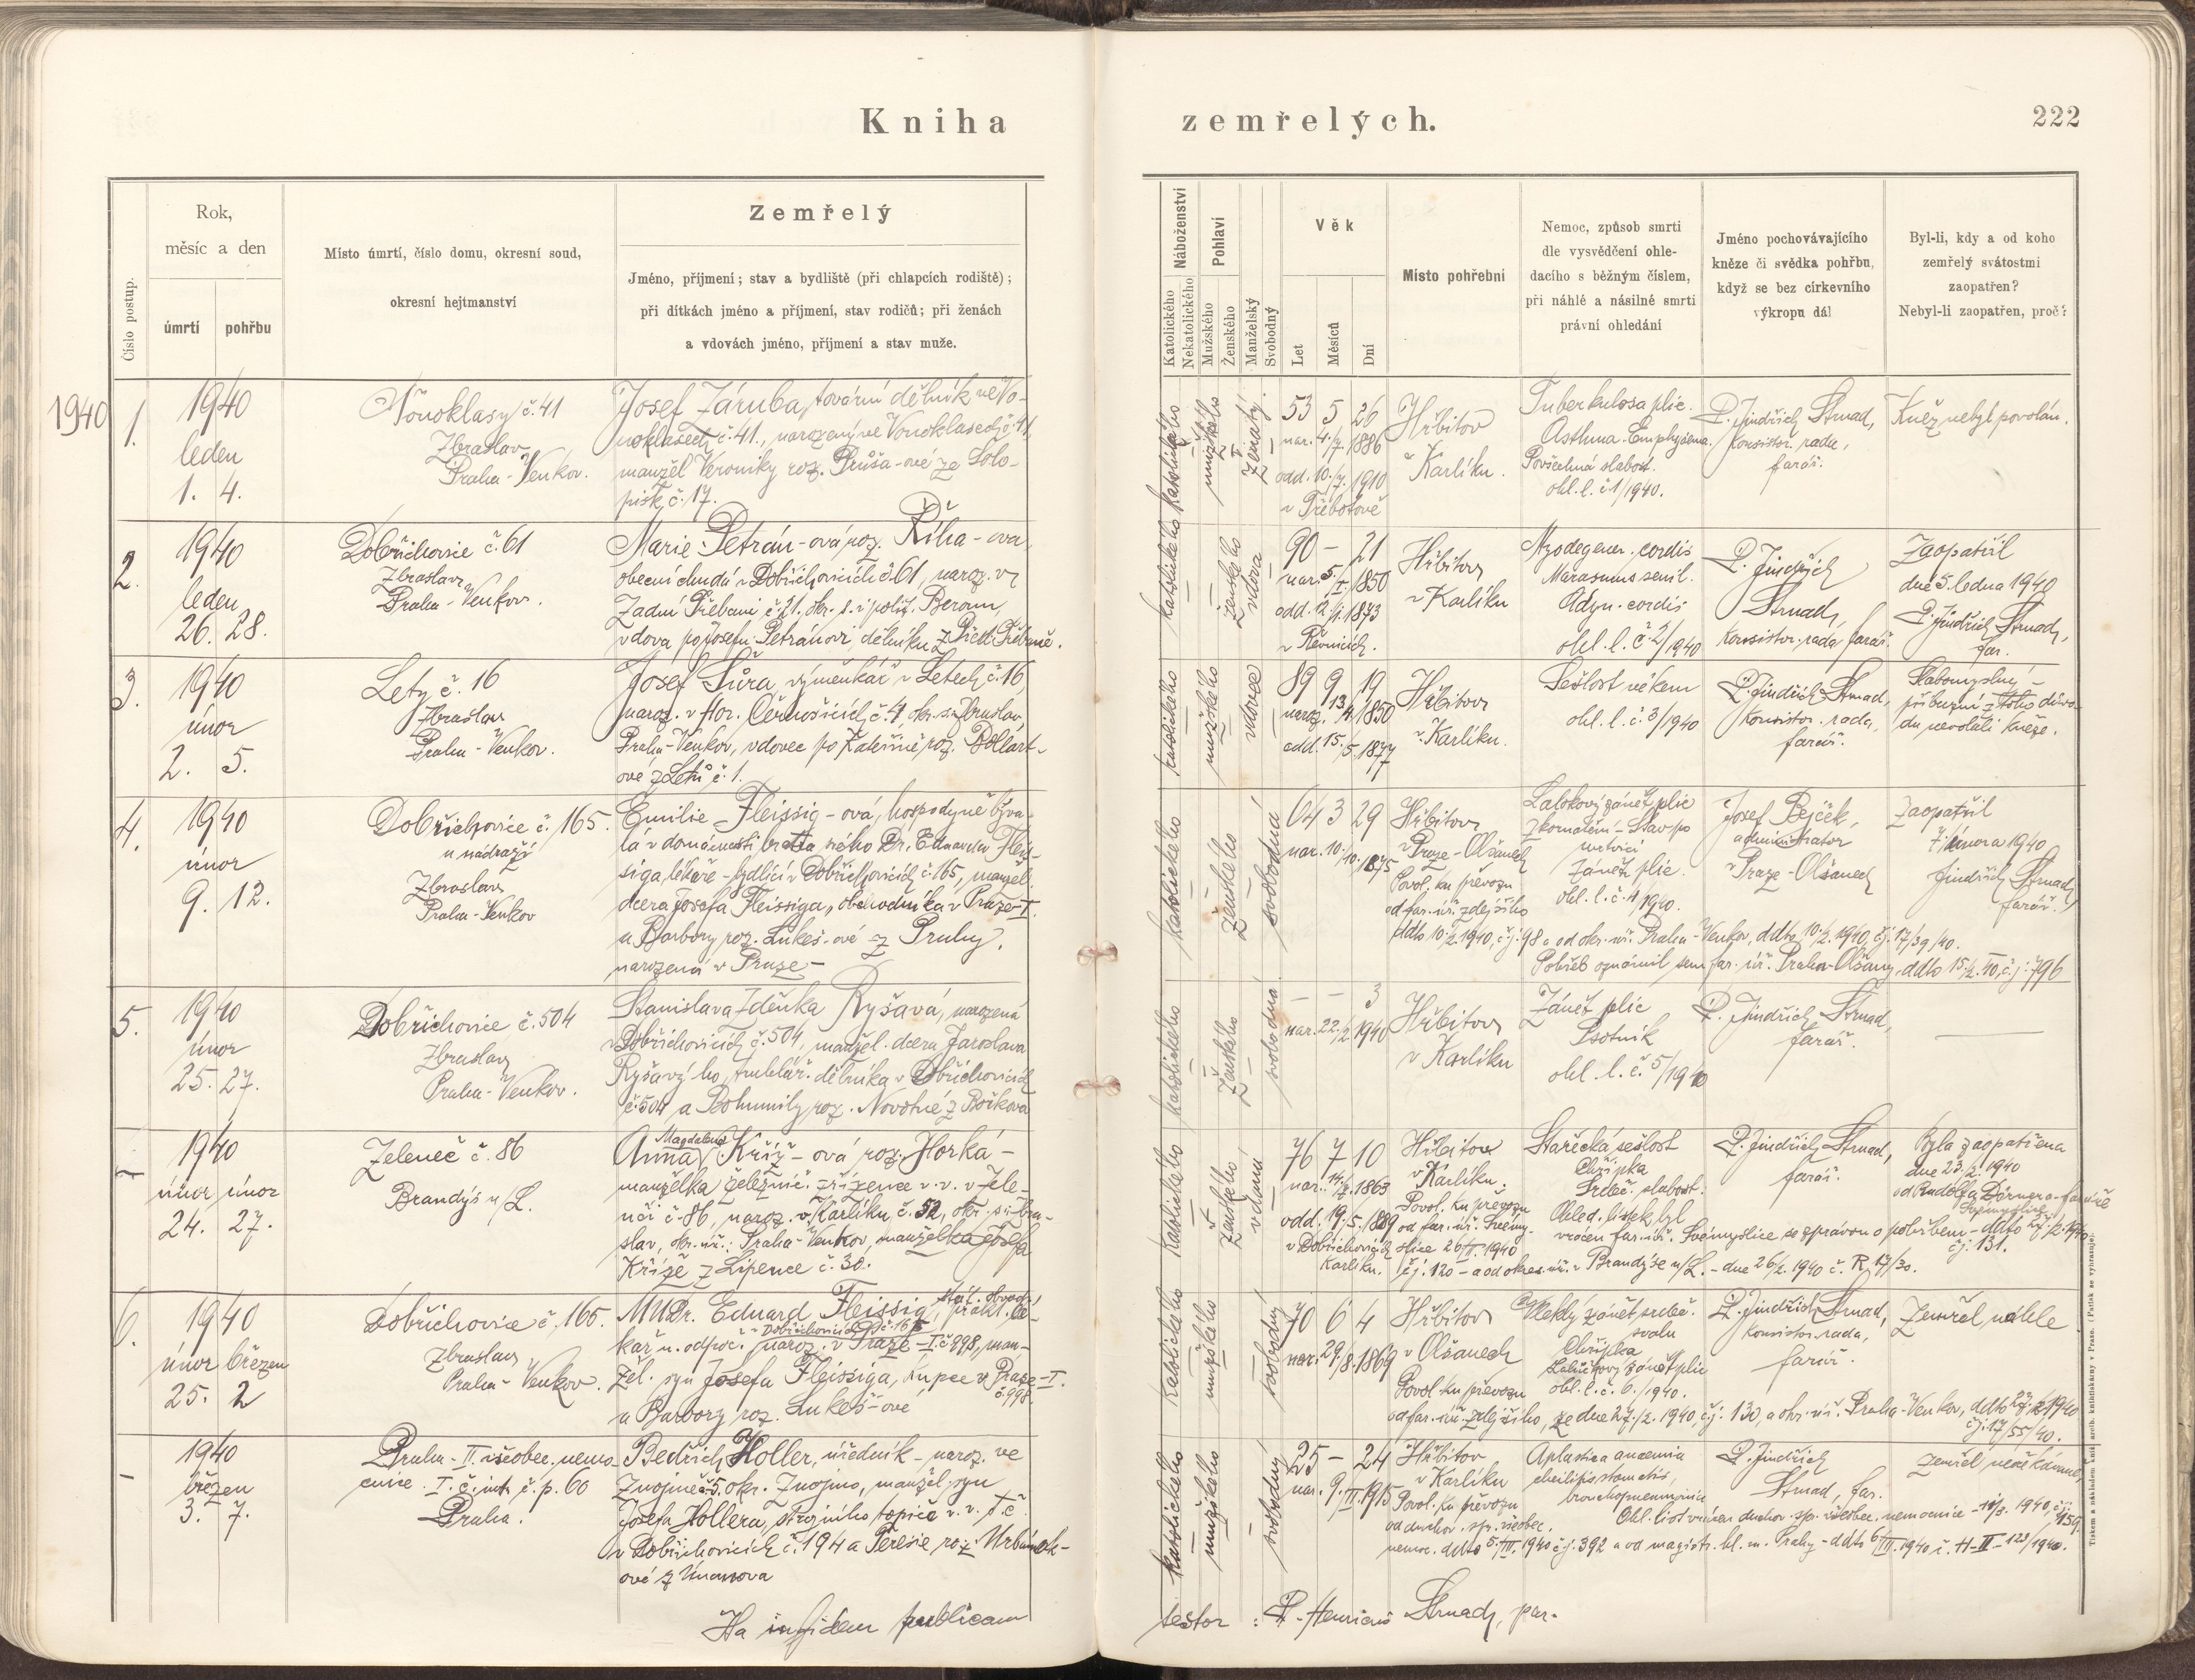 Kniha
zemřelých.
222
Číslo postup.
Rok,
měsíc a den
úmrtí
pohřbu
Místo úmrtí, číslo domu, okresní soud,
okresní hejtmanství
Zemřelý
Jméno, příjmení; stav a bydliště (při chlapcích rodiště);
při dítkách jméno a příjmení, stav rodičů; při ženách
a vdovách jméno, příjmení a stav muže.
Náboženství
Katolického
Nekatolického
Pohlaví
Mužského
Ženského
Manželský
Svobodný
Věk
Let
Měsíců
Dní
Místo pohřební
Nemoc, způsob smrti
dle vysvědčení ohle-
dacího s běžným číslem,
při náhlé a násilné smrti
právní ohledání
Jméno pochovávajícího
kněze či svědka pohřbu,
když se bez církevního
výkropu dál
Byl-li, kdy a od koho
zemřelý svátostmi
zaopatřen?
Nebyl-li zaopatřen, proč?
1940
1.
1940
leden
1. 4.
Vonoklasy č. 41
Zbraslav
Praha-Venkov.
Josef Záruba, tovární dělník ve Vo-
noklasech č. 41., narozený ve Vonoklasech č. 41,
manžel Veroniky roz. Průša-ové ze Solo-
pisk č. 17.
katolického
mužského
ženatý.
53 5 26
nar. 4./7. 1886
odd. 10./7. 1910
v Třebotově
Hřbitov
v Karlíku.
Tuberkulosa plic.
Asthma. Emphysema.
Povšechná slabost.
ohl. l. č. 1/1940.
P. Jindřich Strnad,
konsistor. rada,
farář.
Kněz nebyl povolán.
2.
1940
leden
26. 28.
Dobřichovice č. 61
Zbraslav
Praha-Venkov.
Marie Petrán-ová roz. Říha-ova
obecní chudá v Dobřichovicích č. 61, naroz. v
Zadní Třebani č. 21, okr. s. i polit. Beroun,
vdova po Josefu Petránovi, dělníku z Před. Třebaně.
katolického
ženského
vdova
90 – 21
nar. 5./I. 1850
odd. 12./1. 1873
v Řevnicích.
Hřbitov
v Karlíku
Myodegener. cordis
Marasmus senil.
Adyn. cordis
ohl. l. č. 2/1940
P. Jindřich
Strnad,
konsistor. rada farář.
Zaopatřil
dne 5. ledna 1940
P. Jindřich Strnad,
far.
3.
1940
únor
2. 5.
Lety č. 16
Zbraslav
Praha-Venkov.
Josef Šůra, výměnkář v Letech č. 16,
naroz. v Hor. Černošicích č. 4, okr. s. Zbraslav,
Praha-Venkov, vdovec po Kateřině roz. Bollart-
ové z Letů č. 1.
katolického
mužského
vdovec
89 9 19
naroz. 13./4. 1850
odd. 15./5. 1877
Hřbitov
v Karlíku.
Sešlost věkem
ohl. l. č. 3/1940
P. Jindřich Strnad,
konsistor. rada,
farář.
Slabomyslný –
příbuzní z toho důvo-
du nevolali kněze.
4.
1940
únor
9. 12.
Dobřichovice č. 165.
u nádraží
Zbraslav
Praha-Venkov
Emilie Fleissig-ová, hospodyně býva-
lá v domácnosti bratra svého Dr. Eduarda Fleis-
siga, lékaře – bydlící v Dobřichovicích č. 165, manžel.
dcera Josefa Fleissiga, obchodníka v Praze-I.
a Barbory roz. Lukeš-ové z Prahy.
narozená v Praze –
katolického
ženského
svobodná
64 3 29
nar. 10./10. 1875
Hřbitov
v Praze-Olšanech
Povol. ku převozu
od far. úř. zdejšího
ddto 10./2. 1940, č. j. 98 a od okr. úř. Praha-Venkov, ddto 10./2. 1940, č. j. 17/39/40.
Pohřeb oznámil sem far. úř. Praha-Olšany, ddto 15./2. 40, č. j. 796
Lalokový zánět plic
zkornatění – Stav po
mrtvici
Zánět plic.
ohl. l. č. 4/1940.
Josef Bejček,
administrator
v Praze-Olšanech
Zaopatřil
7. února 1940
Jindřich Strnad,
farář.
5.
1940
únor
25. 27.
Dobřichovice č. 504
Zbraslav
Praha-Venkov.
Stanislava Zdeňka Ryšavá, narozená
v Dobřichovicích č. 504, manžel. dcera Jaroslava
Ryšavého, truhlář. dělníka v Dobřichovicích
č. 504 a Bohumily roz. Novotné z
katolického
ženského
svobodná
– – 3
nar. 22./2. 1940
Hřbitov
v Karlíku
Zánět plic
Psotník
ohl. l. č. 5/1940
P. Jindřich Strnad,
farář.
–
1940
únor únor
24. 27.
Zeleneč č. 86
Brandýs n/L.
Magdalena
Anna Kříž-ová roz. Horká –
manželka železnič. zřízence v. v. v Zele-
nči č. 86, naroz. v Karlíku č. 52, okr. s. Zbra-
slav, okr. úř.: Praha-Venkov, manželka Josefa
Kříže z Lipence č. 30.
katolického
ženského
vdaná
76 7 10
nar. 14./7. 1863
odd. 19./5. 1889
v Dobřichovicích
Karlíku.
Hřbitov
v Karlíku.
Povol. ku převozu
od far. úř. Svémy-
slice 26/II. 1940
č. j. 120 – a od okres. úř. v Brandýse n/L. – dne 26/2. 1940 č. R 17/30.
Stařecká sešlost
Chřipka
Srdeč. slabost.
Ohled. lístek byl
vrácen far. úř. Svémyslice se zprávou o pohřbení – ddto 27./2. 1940
č. j. 131.
P. Jindřich Strnad,
farář.
Byla zaopatřena
dne 23./2. 1940
od Rudolfa Dörnera – faráře
Svémyslice
6.
1940
únor březen
25. 2
Dobřichovice č. 165.
Zbraslav
Praha-Venkov.
MUDr. Eduard Fleissig, stát. obvod. prakt. lé-
kař n. odpoč. v Dobřichovicích č. 165
naroz. v Praze-I. č. 998, man-
žel. syn Josefa Fleissiga, kupce v Praze-I.
č. 998.
a Barbory roz. Lukeš-ové
katolického
mužského
svobodný
70 6 4
nar. 29./8. 1869
Hřbitov
v Olšanech
Povol. ku převozu
od far. úř. zdejšího, ze dne 27./2. 1940, č. j. 130, a okr. úř. Praha-Venkov, ddto 27./2. 1940
č. j. 17/55/40.
Vleklý zánět srdeč.
svalu
Chřipka
zánět plic
ohl. l. č. 6./1940.
P. Jindřich Strnad,
konsistor. rada,
farář.
Zemřel náhle
–
1940
březen
3. 7.
Praha-II. všeobec. nemo-
cnice. I. č. int. č. p. 60
Praha.
Bedřich Holler, úředník – naroz. ve
Znojmě č. 5. okr. Znojmo, manžel. syn
Josefa Hollera, strojního topiče v. v. t. č.
v Dobřichovicích č. 194 a Terezie roz. Urbánek-
ové z Únanova
katolického
mužského
svobodný
25 – 24
nar. 9./II. 1915
Hřbitov
v Karlíku
Povol. ku převozu
od duchov. spr. všeobec.
nemoc. ddto 5./III. 1940 č. j. 392 a od magistr. hl. m. Prahy – ddto 6/III. 1940 č. H-II-123/1940.
Aplastica anaemia
cheilitis, stomatitis,
bronchopneumonia
Ohl. list vrácen duchov. spr. všeobec. nemocnice – 1940, č. j. 159.
P. Jindřich
Strnad, far.
zemřel neočekávaně,
Ita in fidem publicam
testor : P. Henricus Strnad, par.
Tiskem a nákladem kníž. arcib. knihtiskárny v Praze. (Patisk se vyhrazuje.)